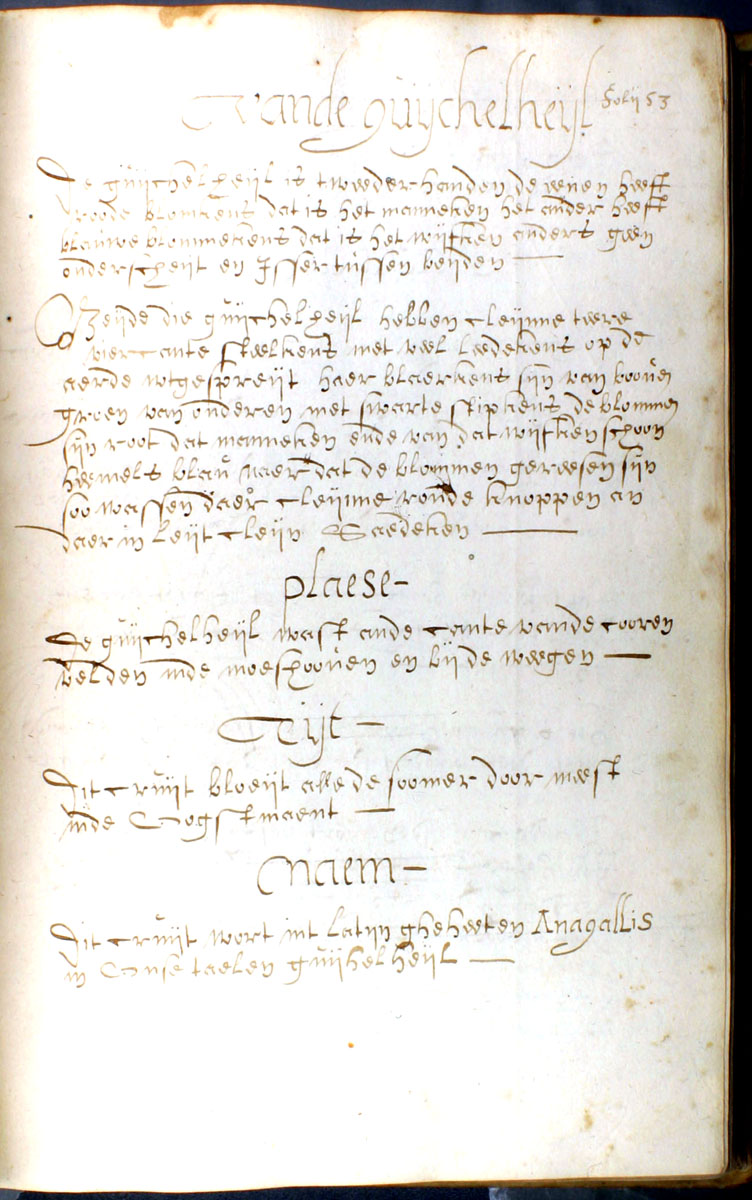 Vande guijchelheijl folij 53
De guijchelheijl is tweederhanden de eenen heeft
roode blomkens dat is het manneken het ander heeft
blauwe blommekens dat is het wijfken anders geen
onderscheijt en isser tussen beijden
Beijde die guijchelheijl hebben cleijnne teere
viercante steelkens met veel leedekens op de
aerde utgespreijt haer blaerkens sijn van booven
groen van onderen met swarte stipkens de blommen
sijn root dat manneken ende van dat wijfken schoon
heemels blau maer dat de blommen geweesen sijn
soo wassen daer cleijnne ronde knoppen an
daer in leijt cleijn saedeken
plaese
De guijchelheijl wast ande cante vande cooren
velden inde moeshooven en bij de weegen
Tijt
Dit cruijt bloeijt alle de soomer door meest
inde Oogstmaent
Naem
Dit cruijt wort int latijn gheheeten Anagallis
in Onse taelen guijhelheijl